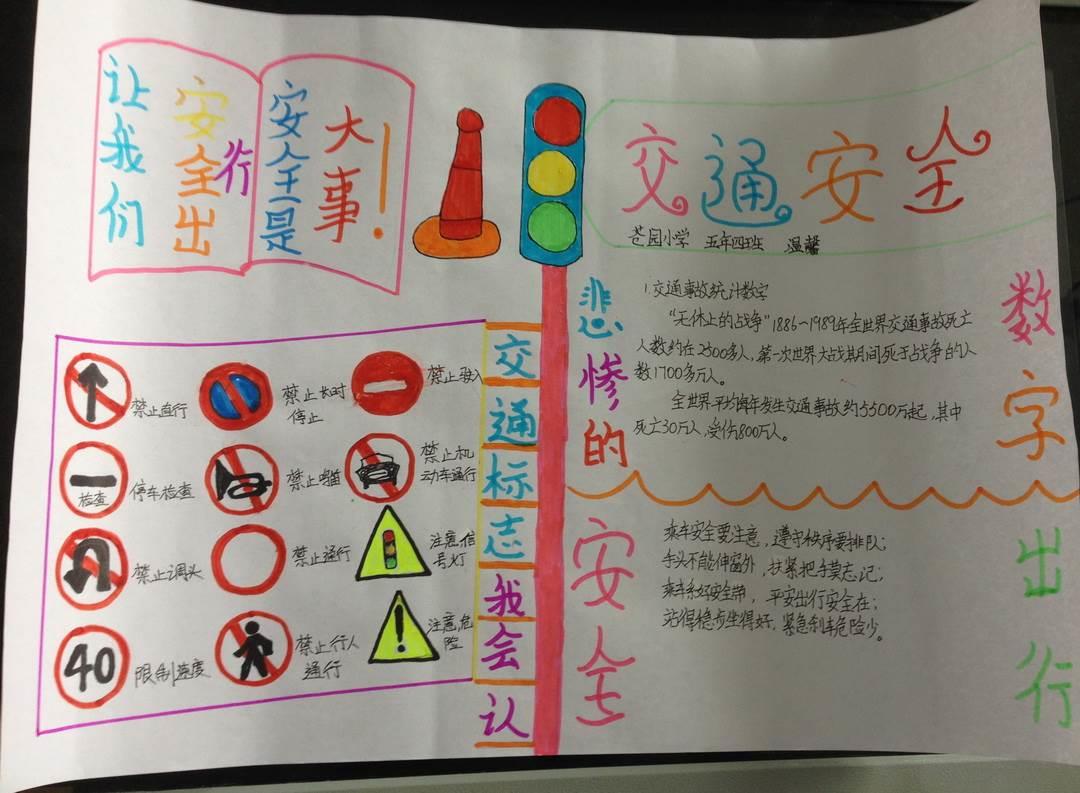 让我们
安全出
行
安全是
大事!
交通安全
苍园小学 五年四班 温馨
交通标志我会认
禁止直行
禁止长时
停止
禁止驶入
检查
停车检查
禁止鸣笛
禁止机
动车通行
禁止调头
禁止通行
注意信
号灯
40
限制速度
禁止行人
通行
注意危
险
悲惨的
数字
1.交通事故统计数字
“无休止的战争”1886~1989年全世界交通事故死亡
人数约在2500多人,第一次世界大战期间死于战争的人
数1700多万人。
全世界平均每年发生交通事故约5500万起,其中
死亡30万人,受伤800万人。
安全
出行
乘车安全要注意,遵守秩序要排队;
手头不能伸窗外,扶紧把手莫忘记;
乘车系好安全带,平安出行安全在;
站得稳步坐得好,紧急刹车危险少。